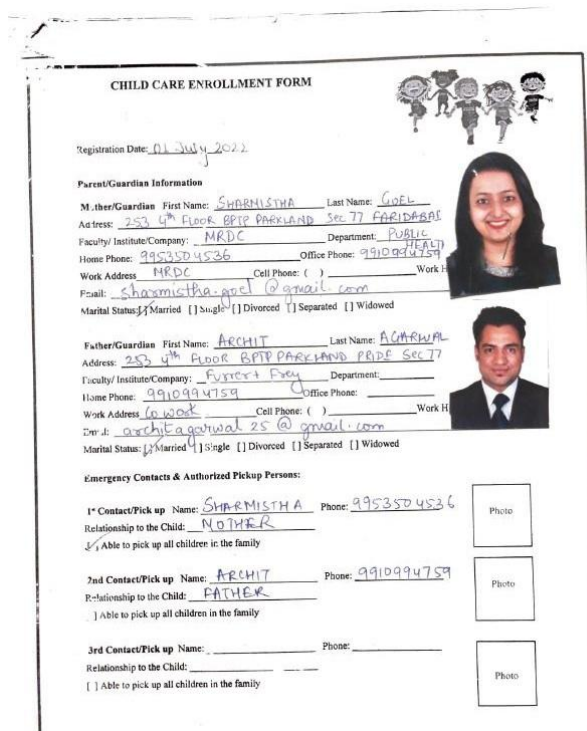 CHILD CARE ENROLLMENT FORM
Registration Date: 01 July 2022
Parent/Guardian Information
Mother/Guardian First Name: SHARMISTHA Last Name: GOEL
Address: 253 4th FLOOR BPTP PARKLAND Sec 77 FARIDABAD
Faculty/ Institute/Company: MRDC Department: PUBLIC HEALTH
Home Phone: 9953504536 Office Phone: 9910994759
Work Address MRDC Cell Phone: ( ) Work H
Email: sharmistha.goel @ gmail.com
Marital Status: [✓] Married [ ] Single [ ] Divorced [ ] Separated [ ] Widowed
Father/Guardian First Name: ARCHIT Last Name: AGARWAL
Address: 253 4th FLOOR BPTP PARKLAND PRIDE Sec 77
Faculty/ Institute/Company: Department:
Home Phone: 9910994759 Office Phone:
Work Address Co work Cell Phone: ( ) Work H
Email: architagarwal 25 @ gmail.com
Marital Status: [✓] Married [ ] Single [ ] Divorced [ ] Separated [ ] Widowed
Emergency Contacts & Authorized Pickup Persons:
1st Contact/Pick up Name: SHARMISTHA Phone: 9953504536
Relationship to the Child: MOTHER
[✓] Able to pick up all children in the family
Photo
2nd Contact/Pick up Name: ARCHIT Phone: 9910994759
Relationship to the Child: FATHER
[ ] Able to pick up all children in the family
Photo
3rd Contact/Pick up Name: Phone:
Relationship to the Child:
[ ] Able to pick up all children in the family
Photo